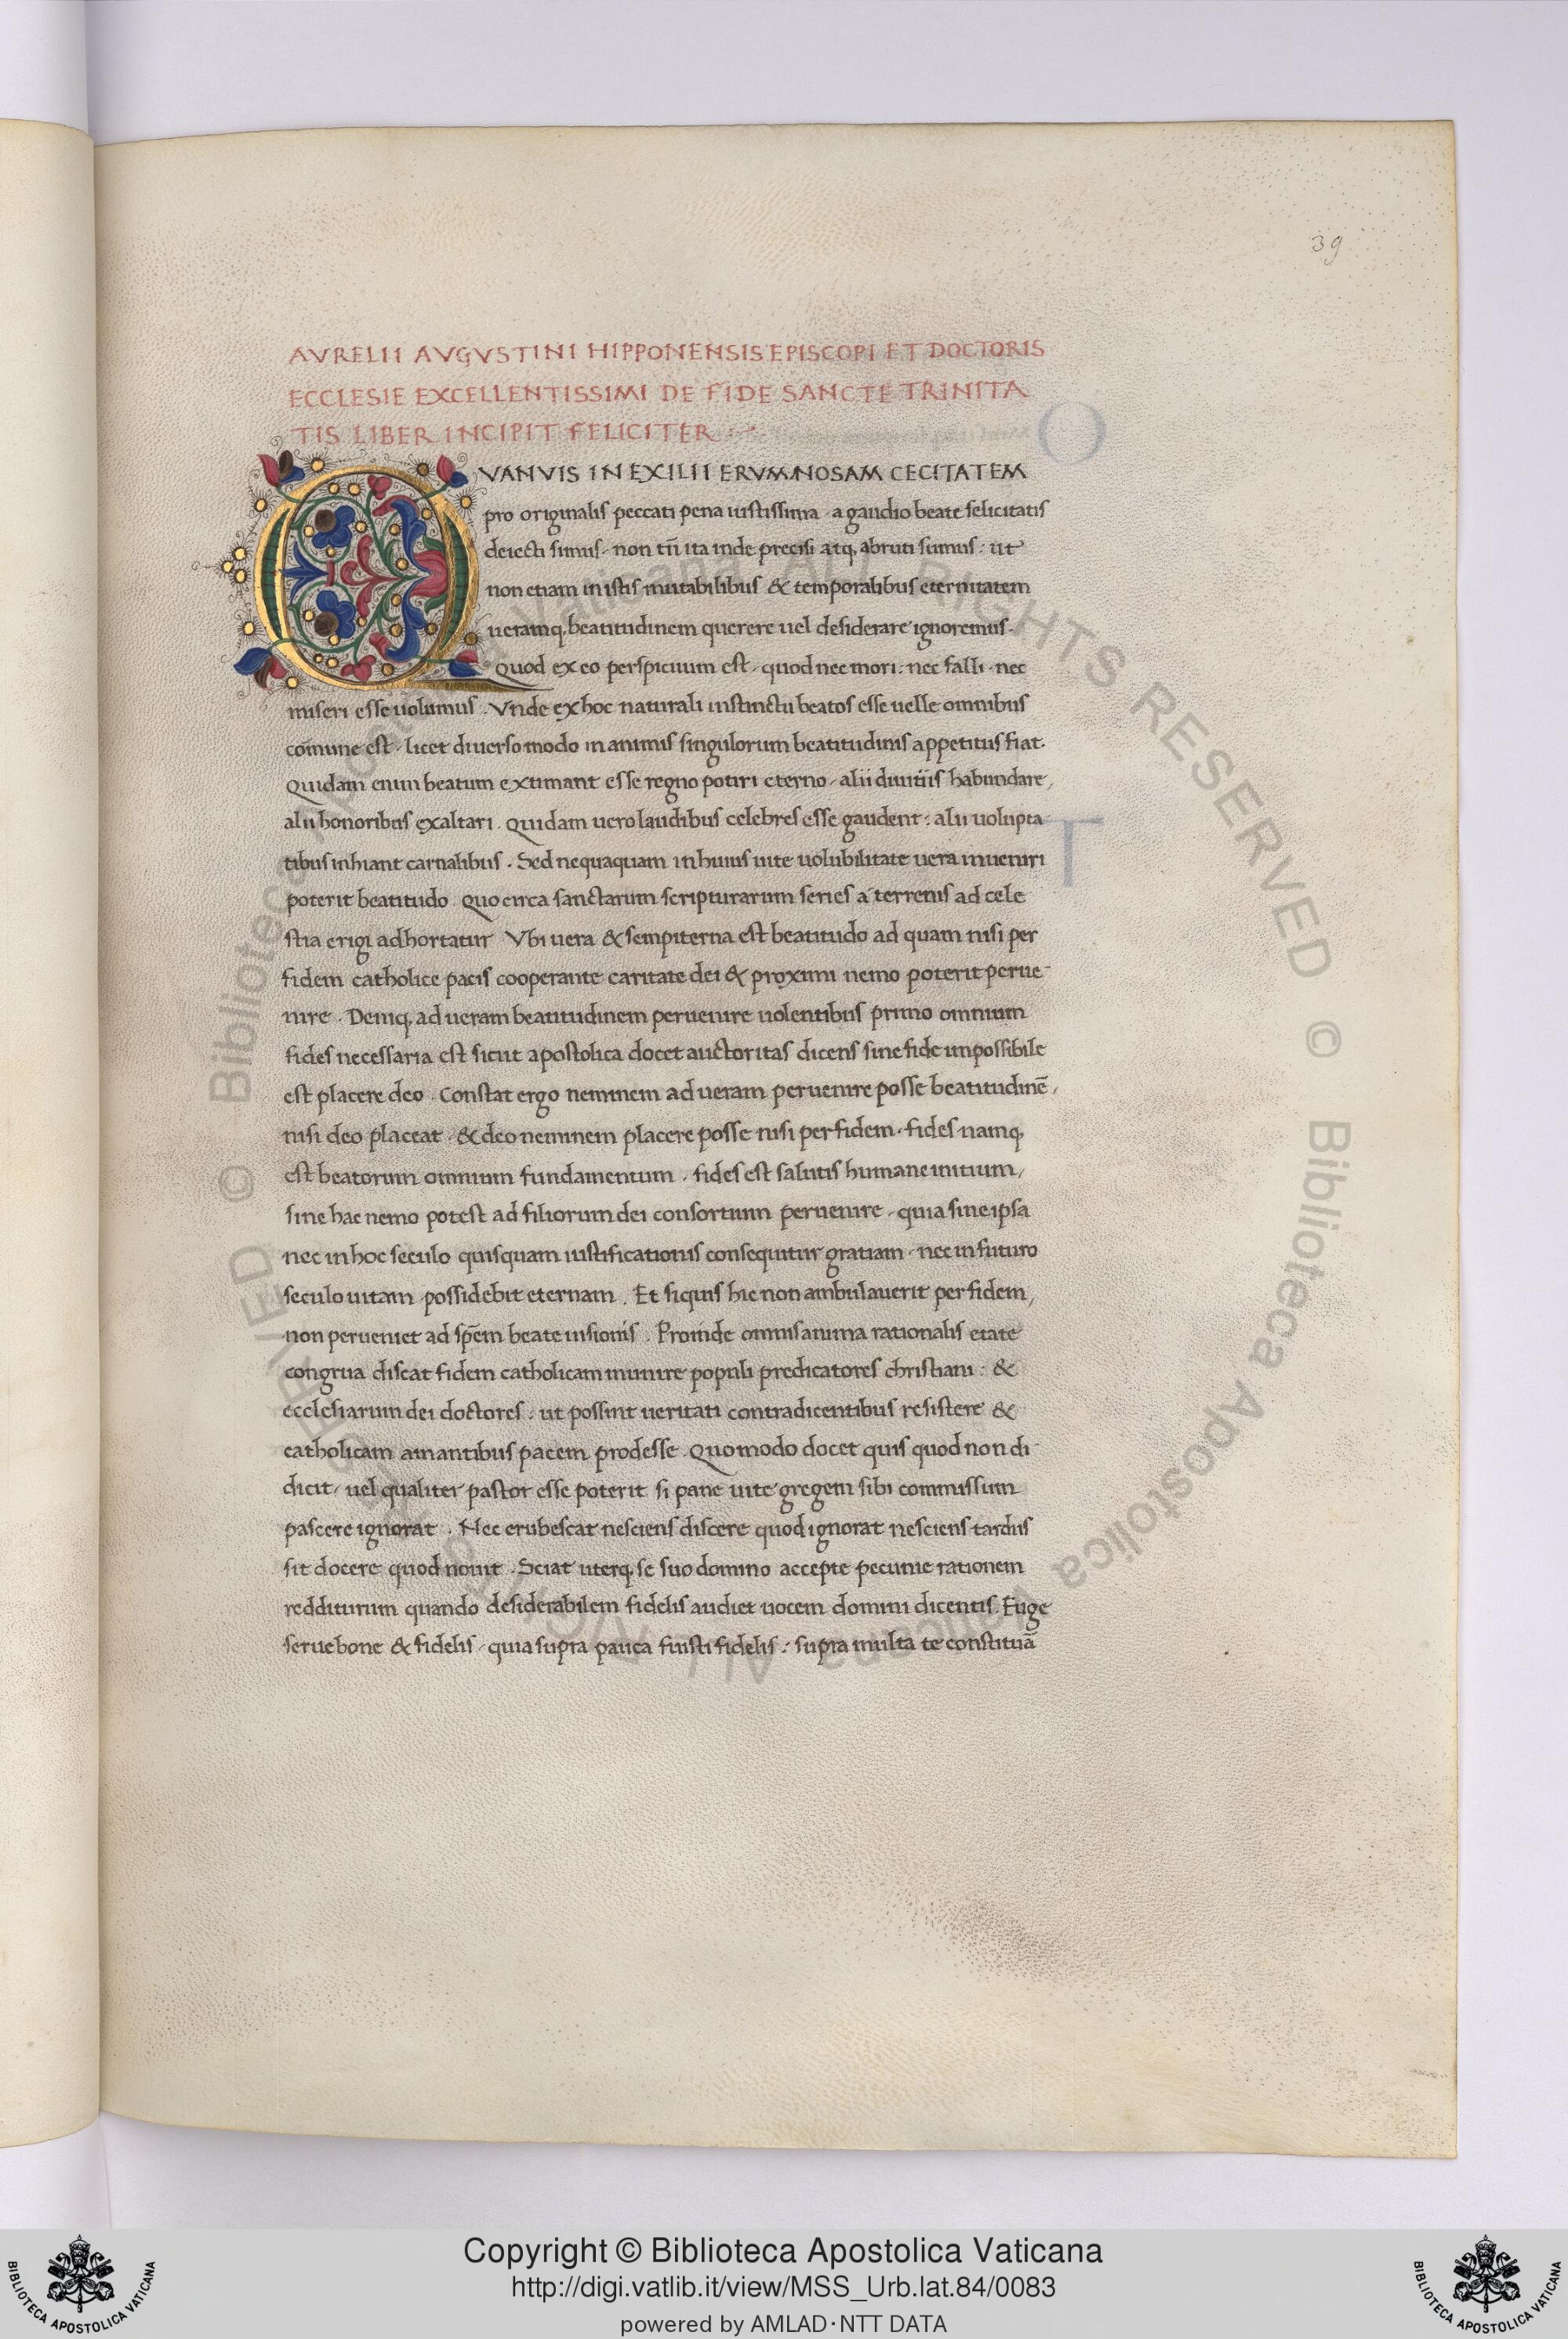 39
AVRELII AVGVSTINI HIPPONENSIS EPISCOPI ET DOCTORIS
ECCLESIE EXCELLENTISSIMI DE FIDE SANCTE TRINITA
TIS LIBER INCIPIT FELICITER
QVANVIS IN EXILII ERVMNOSAM CECITATEM
pro originalis peccati pena iustissima · a gaudio beate felicitatis
deiecti simus · non tñ ita inde precisi atq, abruti sumus : ut
non etiam in istis mutabilibus & temporalibus eternitatem
ueramq, beatitudinem querere uel desiderare ignoremus ·
Quod ex eo perspicuum est · quod nec mori : nec falli · nec
miseri esse uolumus . Vnde ex hoc naturali instinctu beatos esse uelle omnibus
cōmune est · licet diuerso modo in animis singulorum beatitudinis appetitus fiat.
Quidam enim beatum extimant esse regno potiri eterno · alii diuitiis habundare,
alii honoribus exaltari . Quidam uero laudibus celebres esse gaudent : alii uolupta
tibus inhiant carnalibus . Sed nequaquam in huius uite uolubilitate uera inueniri
poterit beatitudo . Quo circa sanctarum scripturarum series a terrenis ad cele
stia erigi adhortatur Vbi uera & sempiterna est beatitudo ad quam nisi per
fidem catholice pacis cooperante caritate dei & proximi nemo poterit perue-
nire . Deniq, ad ueram beatitudinem peruenire uolentibus primo omnium
fides necessaria est sicut apostolica docet auctoritas dicens sine fide impossibile
est placere deo . Constat ergo neminem ad ueram peruenire posse beatitudinē,
nisi deo placeat . & deo neminem placere posse nisi per fidem . fides namq,
est beatorum omnium fundamentum . fides est salutis humane initium,
sine hac nemo potest ad filiorum dei consortium peruenire · quia sine ipsa
nec in hoc seculo quisquam iustificationis consequitur gratiam · nec in futuro
seculo uitam possidebit eternam . Et siquis hic non ambulauerit per fidem,
non perueniet ad spēm beate uisionis . Proinde omnis anima rationalis etate
congrua discat fidem catholicam munire populi predicatores christiani : &
ecclesiarum dei doctores : ut possint ueritati contradicentibus resistere &
catholicam amantibus pacem prodesse . Quomodo docet quis quod non di-
dicit, uel qualiter pastor esse poterit si pane uite gregem sibi commissum
pascere ignorat . Nec erubescat nesciens discere quod ignorat nesciens tardus
sit docere quod nouit . Sciat uterq, se suo domino accepte pecunie rationem
redditurum quando desiderabilem fidelis audiet uocem domini dicentis. Euge
serue bone & fidelis · quia supra pauca fuisti fidelis : supra multa te constituā
© Biblioteca Apostolica Vaticana ALL RIGHTS RESERVED © Biblioteca Apostolica Vaticana ALL RIGHTS RESERVED
Copyright © Biblioteca Apostolica Vaticana
http://digi.vatlib.it/view/MSS_Urb.lat.84/0083
powered by AMLAD·NTT DATA
BIBLIOTECA APOSTOLICA VATICANA
BIBLIOTECA APOSTOLICA VATICANA